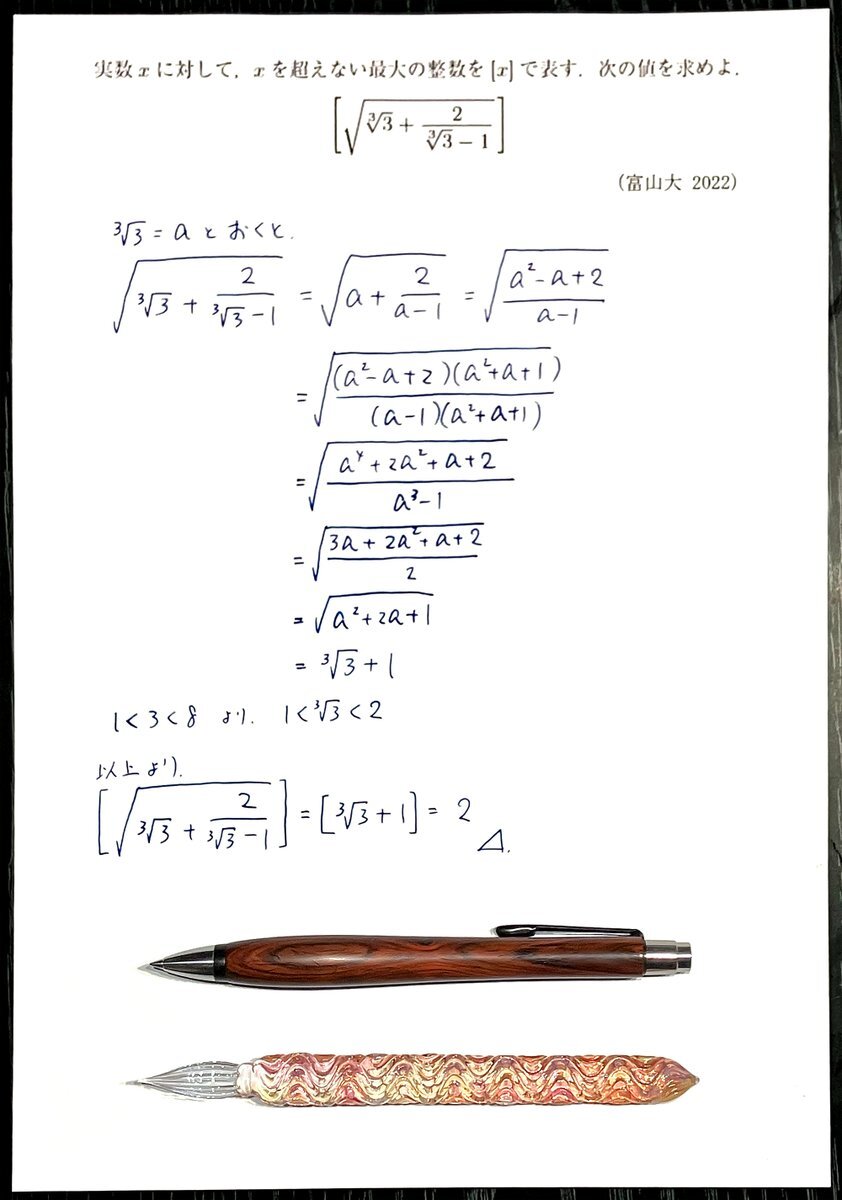 実数 x に対して，x を超えない最大の整数を [x] で表す．次の値を求めよ．
[√(∛3 + 2/(∛3 − 1))]
(富山大 2022)
∛3 = a とおくと．
√(∛3 + 2/(∛3 − 1)) = √(a + 2/(a − 1)) = √((a² − a + 2)/(a − 1))
= √((a² − a + 2)(a² + a + 1)/((a − 1)(a² + a + 1)))
= √((a⁴ + 2a² + a + 2)/(a³ − 1))
= √((3a + 2a² + a + 2)/2)
= √(a² + 2a + 1)
= ∛3 + 1
1 < 3 < 8 より．1 < ∛3 < 2
以上より．
[√(∛3 + 2/(∛3 − 1))] = [∛3 + 1] = 2